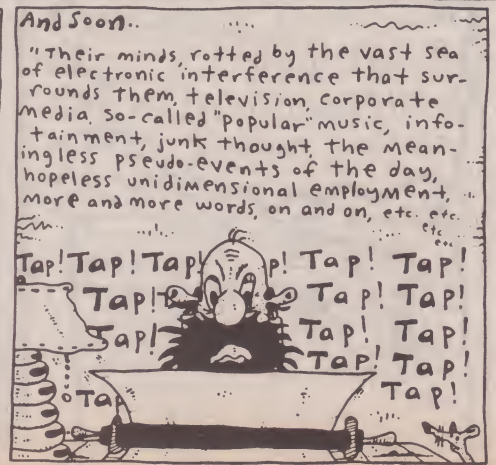 And Soon..
"Their minds, rotted by the vast sea
of electronic interference that sur-
rounds them, television, corporate
media, so-called "popular" music, info-
tainment, junk thought, the mean-
ingless pseudo-events of the day,
hopeless unidimensional employment,
more and more words, on and on, etc. etc.
etc
etc
Tap! Tap! Tap! p! Tap! Tap!
Tap! Tap! Tap!
Tap! Tap! Tap!
Tap! Tap!
Tap Tap!